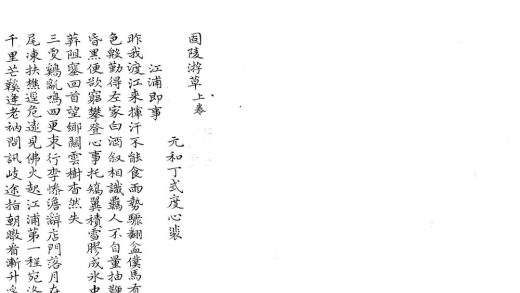 固陵游草上卷
元和丁弍度心裴
江浦即事
昨我渡江來揮汗不能食雨勢驟翻盆僕馬有
色艱勤得左家白酒叙相識羈人不自量抽鞭
昏黑便欲窮攀登心事托矯翼積雪膠成氷史
葬阻壅回首望鄉關雲樹杳然失
三更鷄亂鳴四更束行李慘澹辭店門落月在
尾凍扶樵逕危遠見佛火起江浦第一程宛洛
千里芒鞵逢老衲問訊岐途指朝暾看漸升